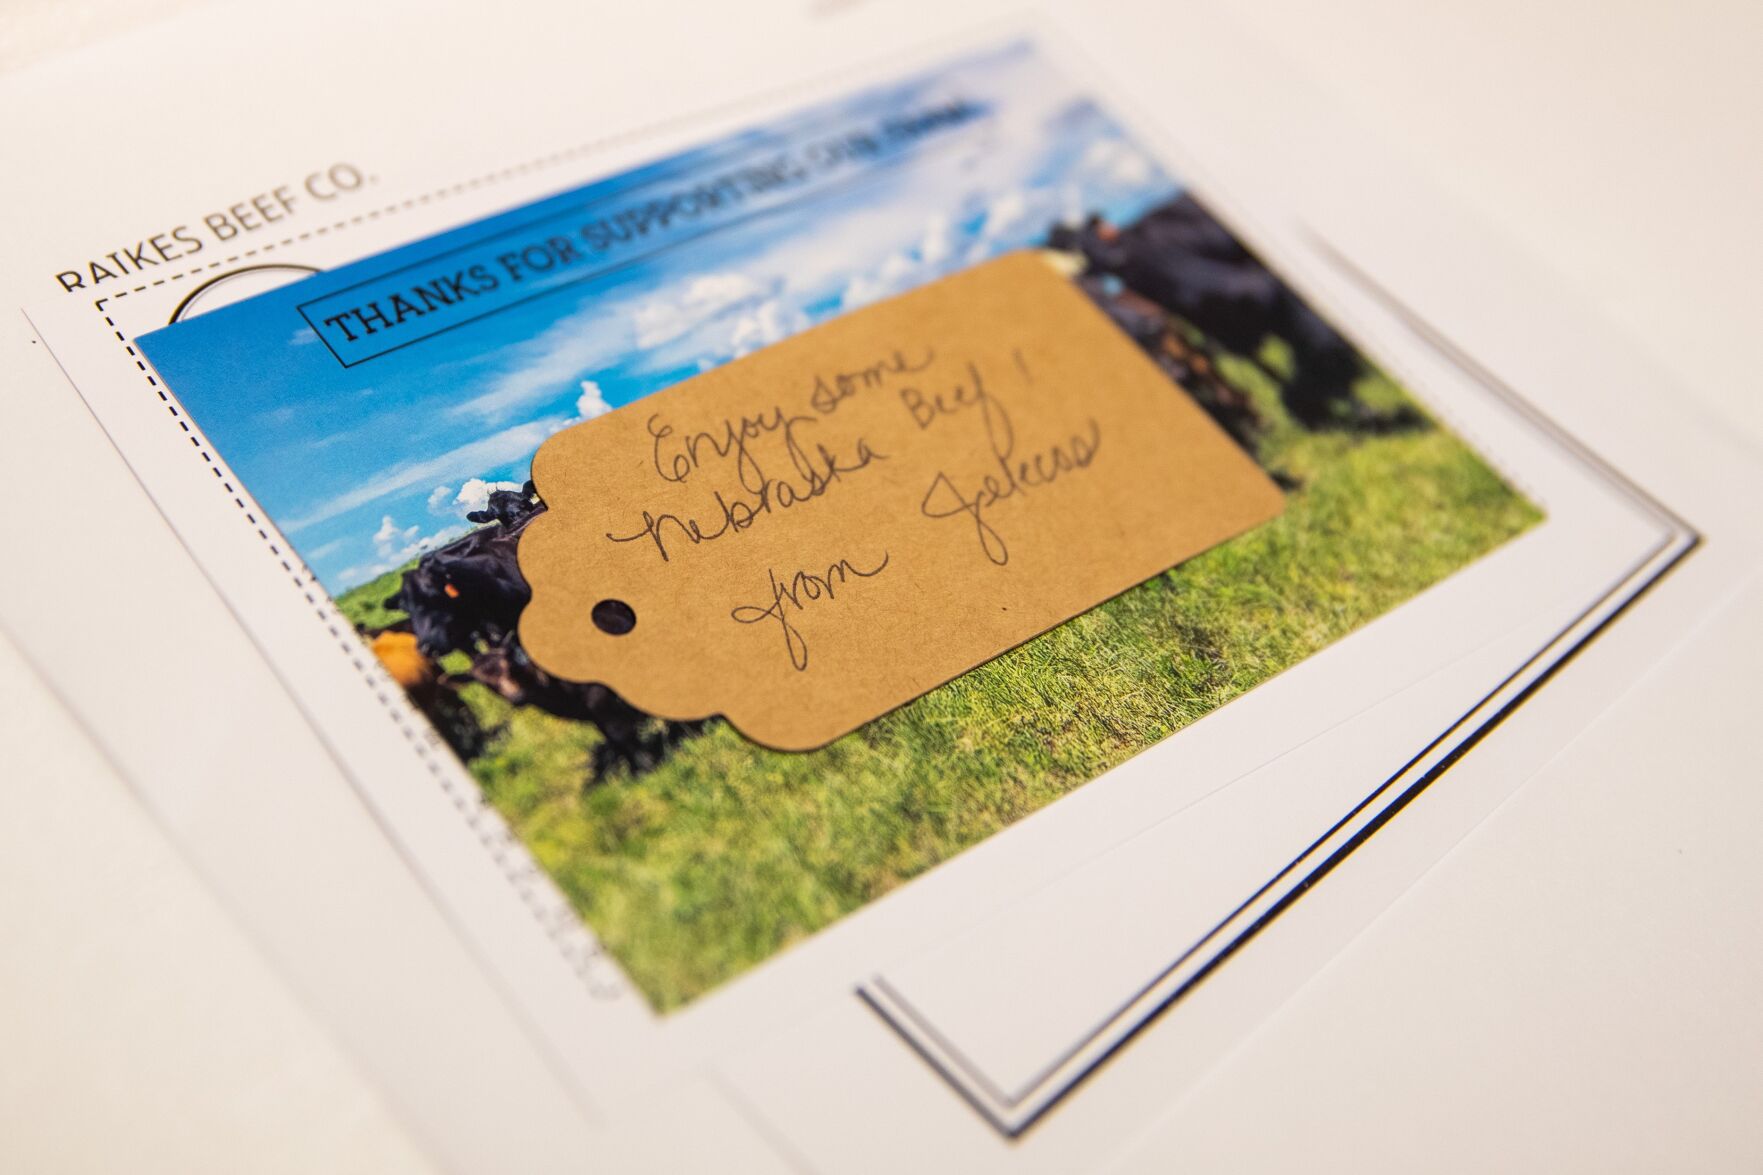 RAIKES BEEF CO.
THANKS FOR SUPPORTING OUR FARM
Enjoy some
Nebraska Beef!
from